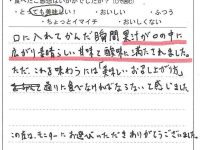 ・とっても美味しい　・おいしい　・ふつう
・ちょっとイマイチ　・おいしくない
口に入れてかんだ瞬間果汁が口の中に
広がり素晴らしい甘味と酸味に満たされました。
ただ、これを味わうには「美味しいお召し上がり方」
通りに食べなければならない、と感じました。
この度は、モニターにお選びいただきありがとうございました。